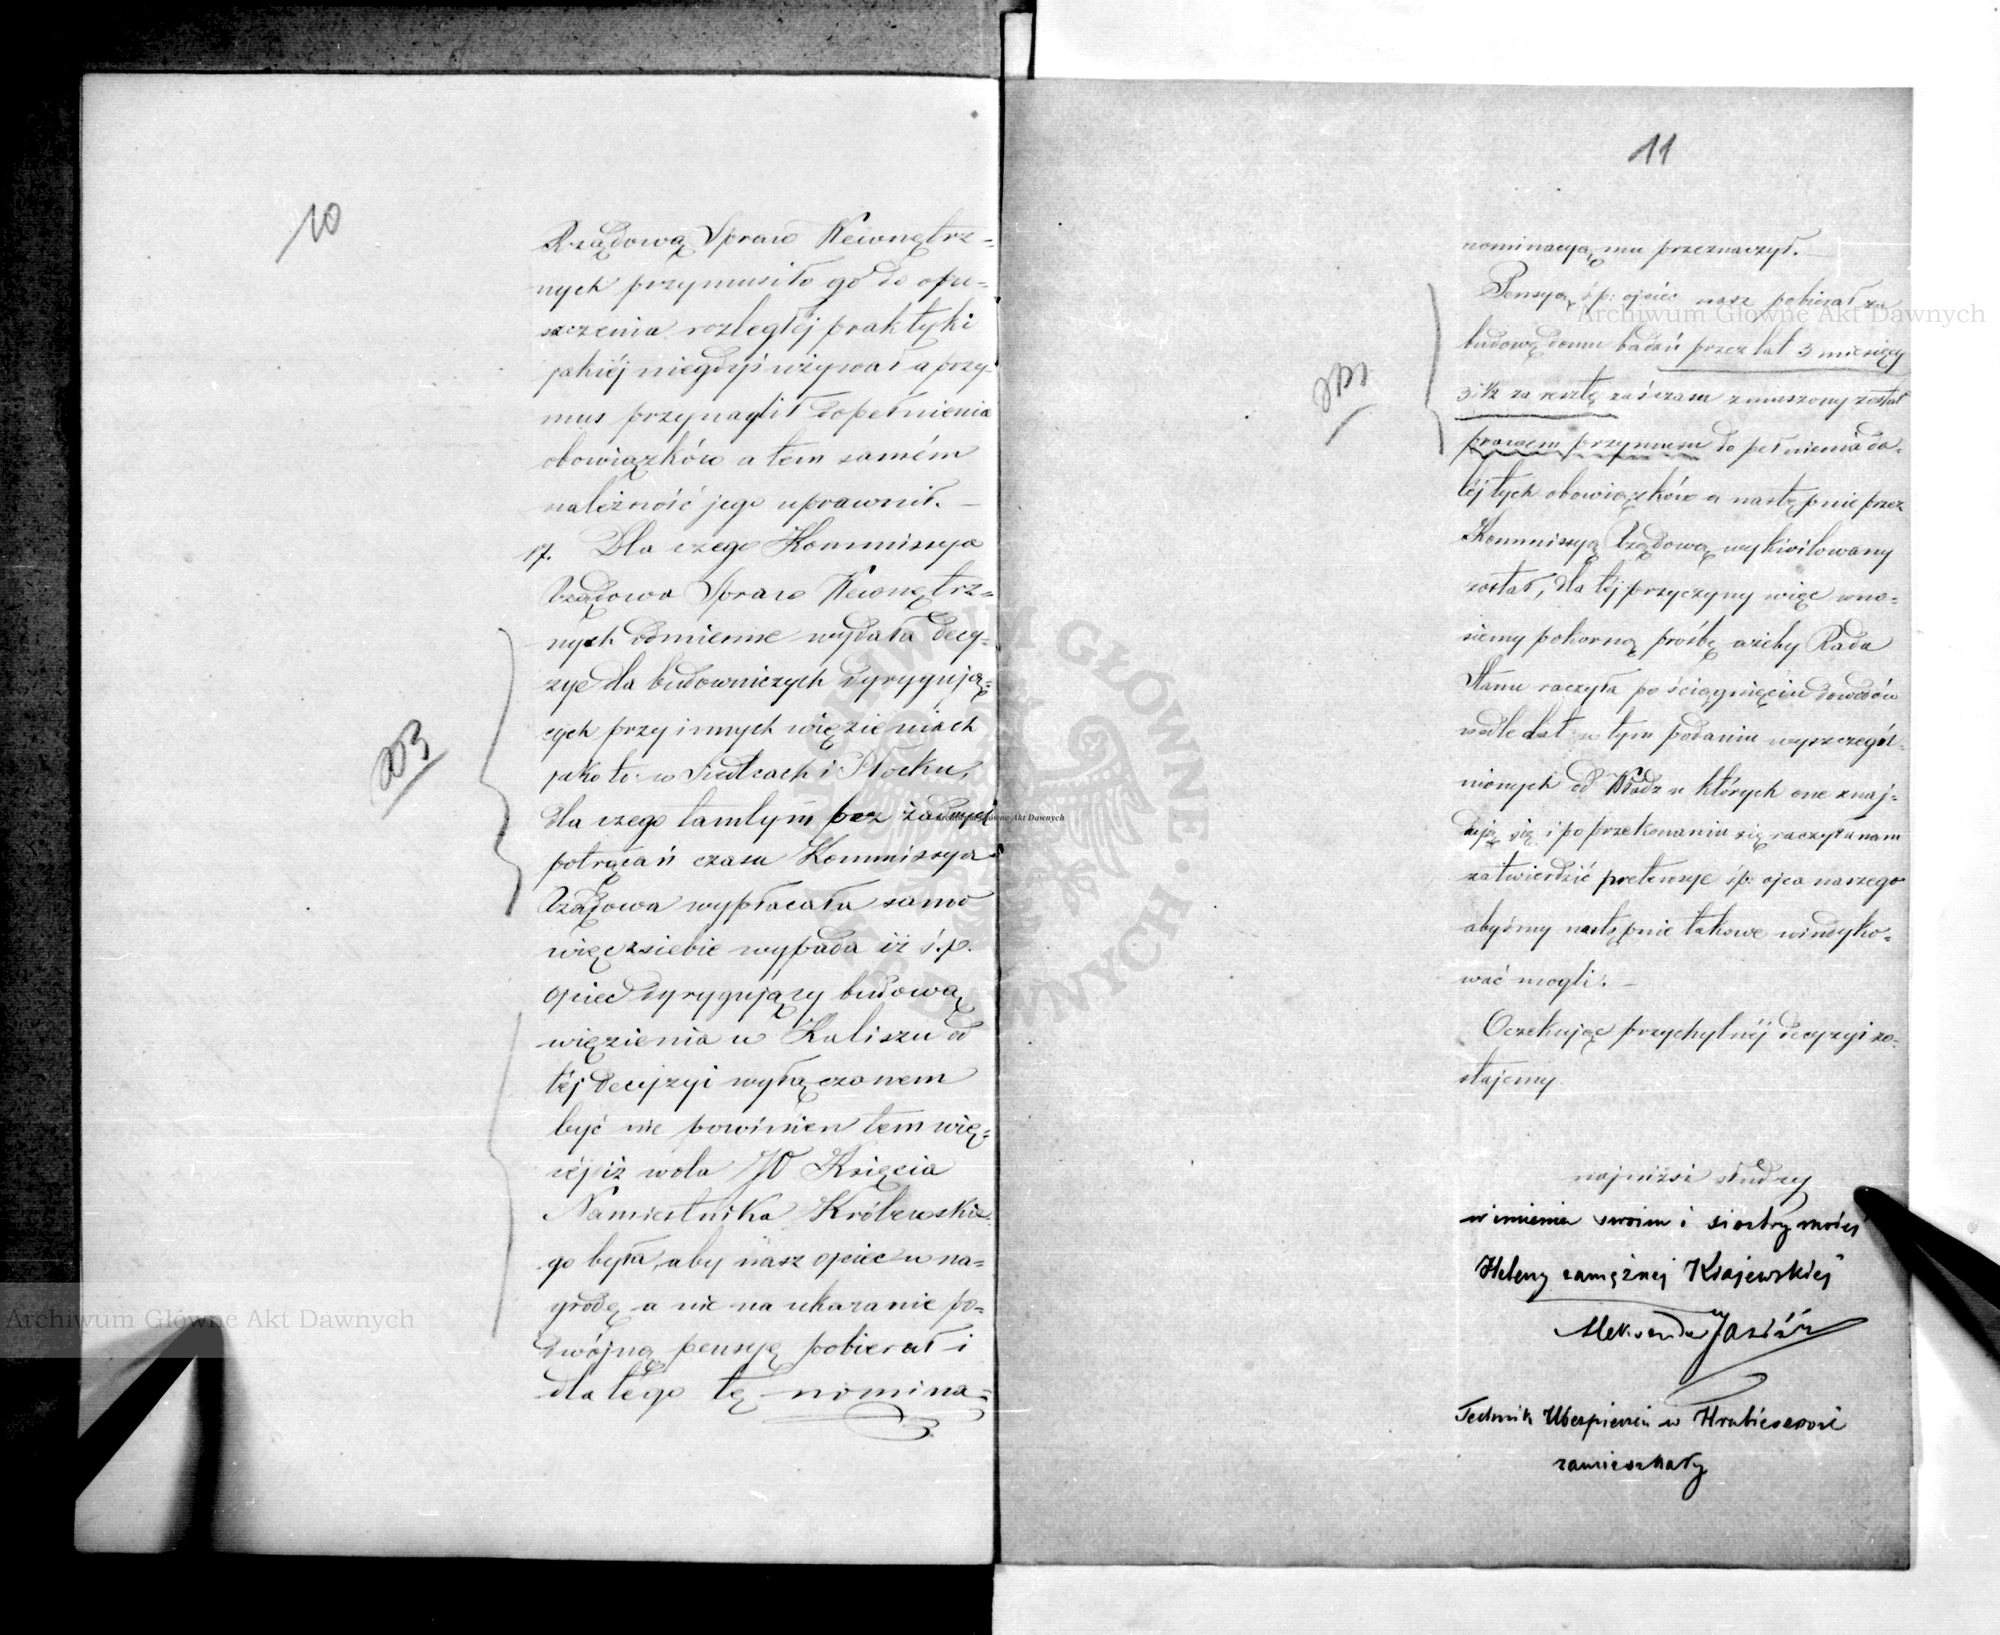 10
Rządową Spraw Wewnętrz=
nych przymusiło go do opu=
szczenia rozległéj praktyki
jakiéj niegdyś używał a przy=
mus przynaglił dopełnienia
obowiązków a tem samém
należność jego uprawnił. —
17. Dla czego Kommissya
Rządowa Spraw Wewnętrz=
nych odmienne wydała decy=
zye dla budowniczych dyrygują=
cych przy innych więzieniach
jako to: w Siedlcach i Płocku,
dla czego tamtym bez żadnych
potrącań czasu Kommissya
Rządowa wypłacała samo
więc z siebie wypada iż ś.p.
ojciec dyrygujący budową
więzienia w Kaliszu od
téj decyzyi wyłączonem
być nie powinien tem wię=
céj iż wola JO Księcia
Namiestnika Królewskie=
go była, aby nasz ojciec w na=
grodę a nie na ukaranie po=
dwójną pensyę pobierał i
dla tego tę nomina=
11
nominacyą mu przeznaczył. —
Pensyą ś.p. ojciec nasz pobierał za
budowę domu badań przez lat 3 miesięcy
3 i ½ za resztę zaś czasu zmuszony został
prawem przymusu do pełnienia da=
léj tych obowiązków a następnie przez
Kommissyą Rządową wykwitowany
został, dla téj przyczyny więc wno=
siemy pokorną prośbę ażeby Rada
Stanu raczyła po ściągnięciu dowodów
wedle dat w tym podaniu wyszczegól=
nionych od Władz w których one znaj=
dują się i po przekonaniu się raczyła nam
zatwierdzić pretensye ś.p. ojca naszego
abyśmy następnie takowe windyko=
wać mogli. —
Oczekując przychylnéj decyzyi zo=
stajemy
najniżsi słudzy
w imieniu swoim i siostry mojej
Heleny zamężnej Krajewskiej
Aleksander
Technik Ubezpieczeń w Hrubieszowie
zamieszkały
Archiwum Główne Akt Dawnych
Archiwum Główne Akt Dawnych
Archiwum Główne Akt Dawnych